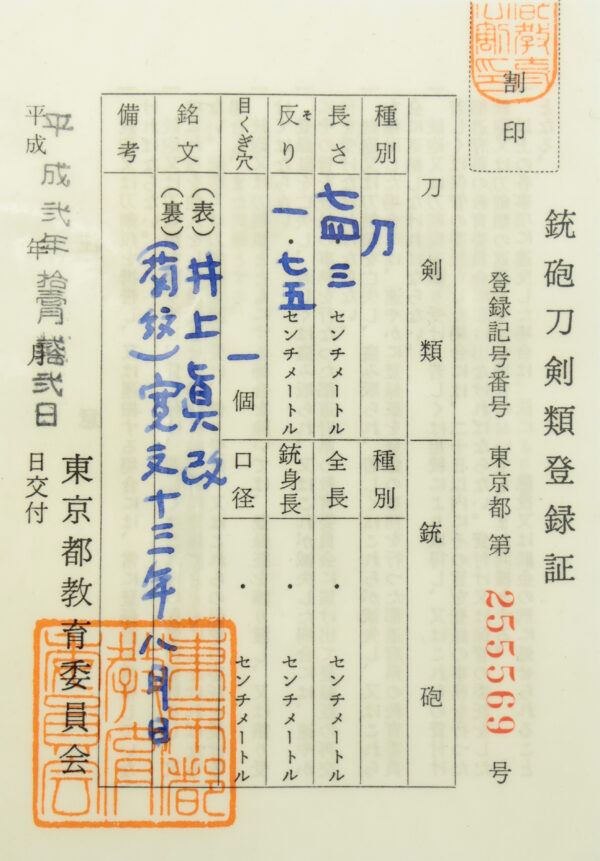 割印
銃砲刀剣類登録証
登録記号番号 東京都 第 255569 号
刀剣類
銃砲
種別 刀
種別
長さ 七四・三 センチメートル
全長 ・ センチメートル
反り そ 一・七五 センチメートル
銃身長 ・ センチメートル
目くぎ穴 一 個
口径 ・ センチメートル
銘文 (表) 井上真改
(裏) (菊紋) 寛文十三年八月日
備考
東京都教育委員会
平成 年 月 日交付
平成弐年拾壹月 弐日
東京都教育委員会